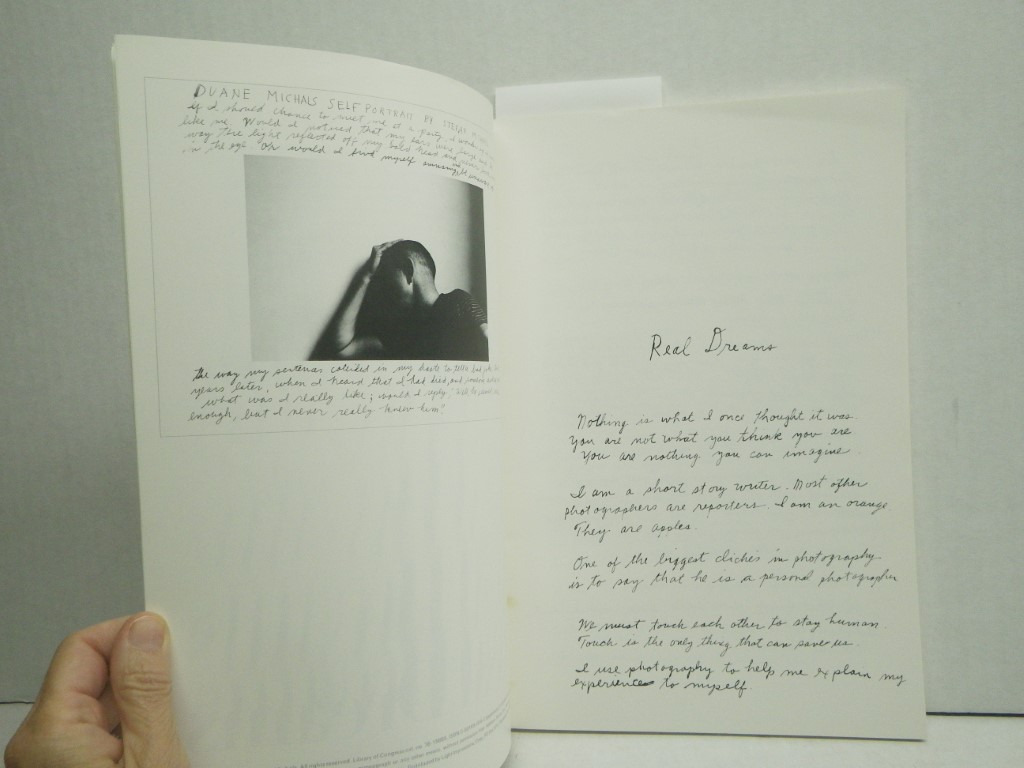 DUANE MICHALS SELF PORTRAIT BY
if I should chance to meet me at a party, I would
like me. Would I notice that my ears were large
way the light reflected off my bald head and
in the eye. Or would I find myself amusing,
the way my sentences collided in my haste to tell
years later, when I heard that I had died, and
what was I really like; would I reply,
enough, but I never really knew him."
All rights reserved. Library of Congress
Real Dreams
Nothing is what I once thought it was.
You are not what you think you are
You are nothing you can imagine.
I am a short story writer. Most other
photographers are reporters. I am an orange
They are apples.
One of the biggest cliches in photography
is to say that he is a personal photographer
We must touch each other to stay human.
Touch is the only thing that can save us.
I use photography to help me explain my
experiences to myself.